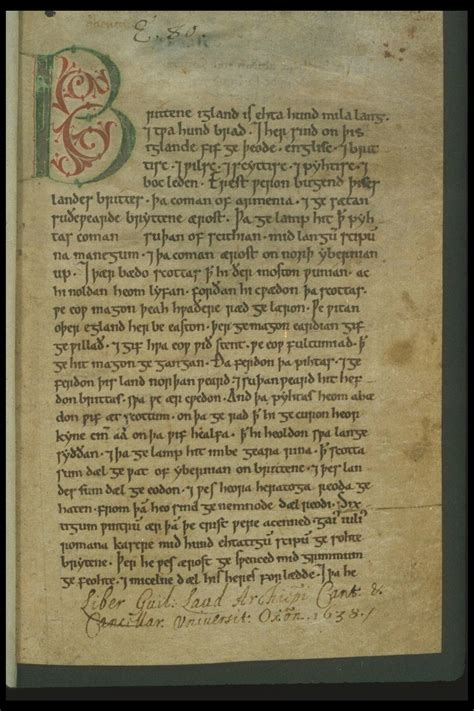 E. 80.
Brittene igland is ehta hund mila lang.
⁊ tpa hund brad. ⁊ her sind on þis
iglande fif ge þeode. englisc. ⁊ brit
tisc. ⁊ pilsc. ⁊ scyttisc. ⁊ pyhtisc. ⁊
boc leden. Erest peron bugend þises
landes brittes. þa coman of armenia. ⁊ ge sætan
suðepearde bryttene ærost. Þa ge lamp hit ꝥ pyh
tas coman suþan of scithian. mid langū scipū
na manegum. ⁊ þa coman ærost on norþ ybernian
up. ⁊ þær bædo scottas ꝥ hi ðer moston punian. ac
hi noldan heom lyfan. forðan hi cpædon þa scottas.
pe eop magon þeah hpaðere ræd ge læron. Þe pitan
oþer egland her be easton. þer ge magon eardian gif
ge pillað. ⁊ gif hpa eop pið stent. pe eop fultumiað. ꝥ
ge hit magon ge gangan. Ða ferdon þa pihtas. ⁊ ge
ferdon þis land norþan peard. ⁊ suþan peard hit hef
don brittas. spa pe ær cpedon. And þa pyhtas heom abæ
don pif æt scottum. on þa ge rad ꝥ hi ge curon heor
kyne cīn aa on þa pif healfa. ꝥ hi heoldon spa lange
syððan. ⁊ þa ge lamp hit imbe geara rina. ꝥ scotta
sum dæl ge pat of ybernian on brittene. ⁊ þes lan
des sum dæl ge eodon. ⁊ pes heora heratoga reoda ge
haten. from þā heo sind ge nemnode dæl reodi. Six
tigum pintrū ær þā þe crist pere acenned. gaiꝰ iuliꝰ
romana kasere mid hund ehtatigū scipū ge sohte
brytene. Þer he pes ærost ge spenced mid grimmum
ge feohte. ⁊ micelne dæl his heres forlædde. ⁊ þa he
Liber Guil: Laud Archiep̄i Cant: &
Cancillar. Universit: Oxōn. 1638.